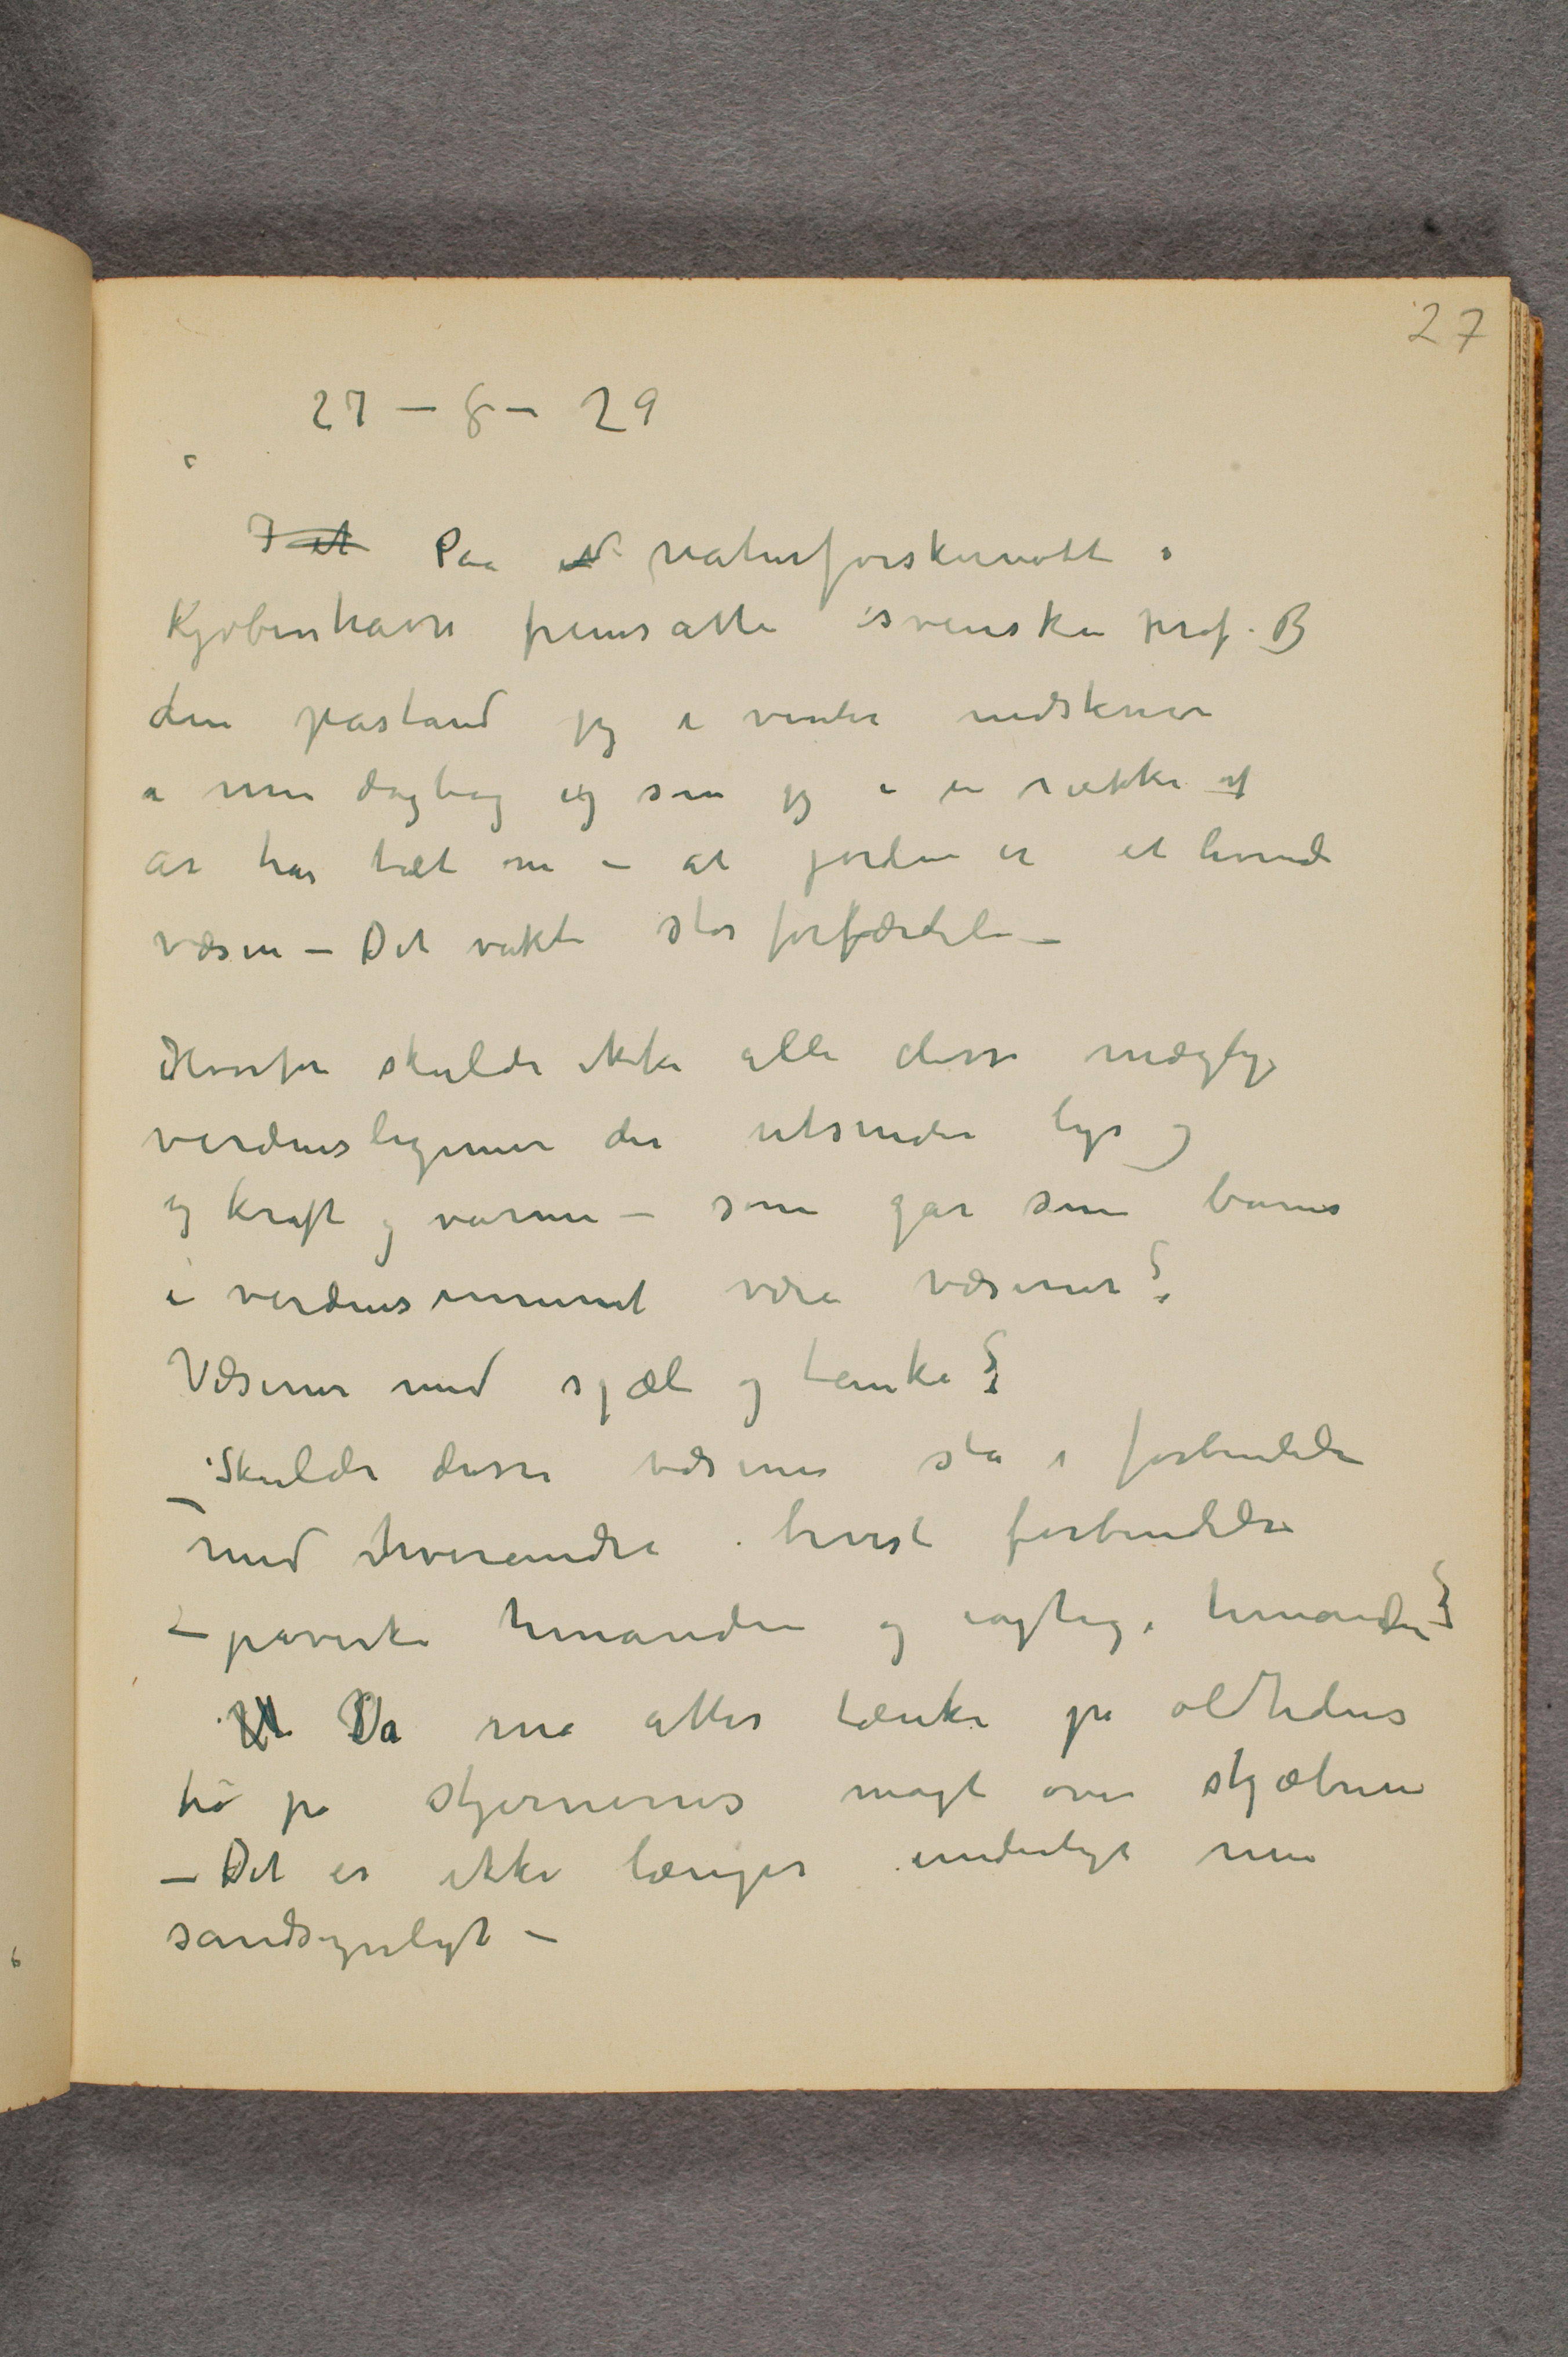 27
27 – 8 – 29
I et Paa et naturforskermøtte i
Kjøbenhavn fremsatte svenske prof. B
den påstand jeg i vinter nedskrev
i min dagbog og som jeg i en række af
år har talt om – at jorden er et levende
væsen – Det vakte stor forfærdelse –
Hvorfor skulde ikke alle disse mægtige
verdenslegemer der utsender lys og
og kraft og varme – som går sine baner
i verdensrummet være væsener?
Væsener med sjæl og tanke?
Skulde disse væsener stå i forbindelse
med hverandre bevist forbindelse
– påvirke hinanden og iagttage hinanden?
Da må atter tænke på oldtidens
tro på stjernernes magt over skjæbnen
– Det er ikke længer underligt men
sandsynligt –